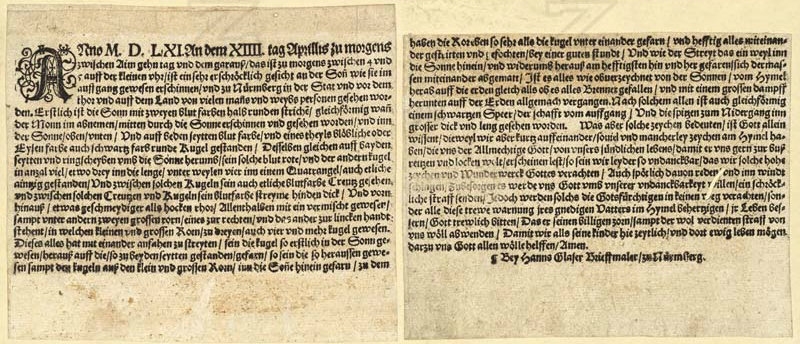 ANno M. D. LXI. An dem XIIII. tag Aprillis zu morgens
zwischen Aim gehn tag vnd dem garaus / das ist zu morgens zwischen 4 vnd
5 auff der kleinen vhr / ist ein sehr erschröcklich gesicht an der Soñ wie sie im
auffgang gewesen erschinnen / vnd zu Nürmberg in der Stat vnd vor dem
thor vnd auff dem Land von vielen mañs vnd weybs personen gesehen wor-
den. Erstlich ist die Sonn mit zweyen blutfarben halb runden strichẽ / gleichförmig wañ
der Monn im abnemen / mitten durch die Sonn erschinnen vnd gesehen worden / vnd inn
der Sonn / oben / vnten / Vnd auff beden seytten blut farbe / vnd eines theyls blöbliche oder
Eysen farbe auch schwartz farb runde Kugel gestanden / Desselben gleichen auff bayden
seytten vnd ring scheyben vmb die Sonne herumb / sein solche blut rote / vnd der andern kugel
in anzal viel / etwo drey inn die lenge / vnter weylen vier inn einem Quatrangel / auch etliche
ainzig gestanden / Vnd zwischen solchen Kugeln sein auch etliche blutfarbe Creutz gesehen,
vnd zwischen solchen Creutzen vnd Kugeln sein blutfarbe streyme hinden dick / Vnd vorn
hinauß / etwas geschmeydiger alls hocken rhor / Allenthalben mit ein vermischt gewesen /
sampt vnter andern zweyen grossen rorn / eines zur rechten / vnd das ander zur lincken handt
stehent / in welchen kleinen vnd grossen Rorn / zu dreyen / auch vier vnd mehr kugel gewesen.
Dieses alles hat mit einander anfahen zu streyten / sein die kugel so erstlich in der Sonn ge-
wesen / herauß auff die / so zu beyden seytten gestanden / gefarn / so sein die so heraussen gewe-
sen sampt den kugeln auß den klein vnd grossen Rorn / inn die Soñe hinein gefarn / zu dem
haben die Ror eben so sehr alls die kugel vnter einander gefarn / vnd hefftig alles miteinan-
der gestritten vnd gefochten / bey einer guten stundt / Vnd wie der Streyt das ein weyl inn
die Sonne hinein / vnd widerumb herauß am hefftigsten hin vnd her gefaren / sich der mas-
sen miteinander abgematt / Ist es alles wie obuerzeychnet von der Sonnen / vom Hymel
herab auff die erden gleich alls ob es alles Brennet gefallen / vnd mit einem grossen dampff
herunten auff der Erden allgemach vergangen. Nach solchem allen ist auch gleichförmig
einem schwartzen Speer / der schafft vom auffgang / Vnd die spitzen zum Nidergang inn
grosser dick vnd leng gsehen worden. Was aber solche zeychen bedeuten / ist Gott allein
wissent / dieweyl wir aber kurtz auff einander / souil vnd mancherley zeychen am Hymel ha-
ben / die vns der Allmechtige Gott / von vnsers sündlichen lebens / damit er vns gern zur buß
reitzen vnd locken wolt / erscheinen lest / so sein wir leyder so vndanckbar / das wir solche hohe
zeychen vnd Wunderwerck Gottes verachten / Auch spötlich dauon reden / vnd inn windt
schlagen, Zubesorgen es werde vns Gott vmb vnserer vndanckbarkeyt willen / ein schröck-
liche straff senden / Jedoch werden solchs die Gotsfürchtigen in keinen weg verachten / son-
der alle diese trewe warnung jres gnedigen Vatters im Hymel behertzigen / jr Leben bes-
sern / Gott trewlich bitten / Das er seinen billigen zorn / sampt der wol verdienten straff von
vns wöll abwenden / Damit wir alls seine kinder hie zeytlich / vnd dort ewig leben mögen
darzu vns Gott allen wölle helffen / Amen.
¶ Bey Hanns Glaser Brieffmaler / zu Nürmberg.